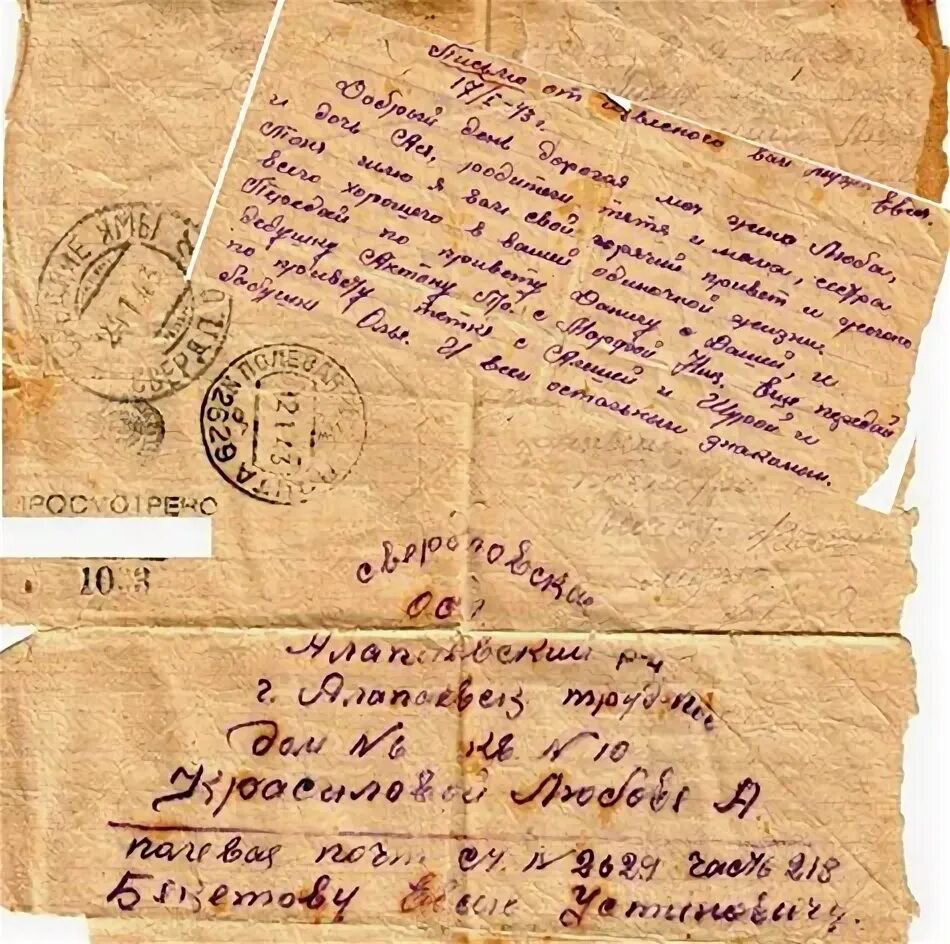 Письмо от известного вам мужа Евсея
17/I-43 г.
Добрый день дорогая моя жена Люба,
и дочь Ася, родители тетя и мама, сестра
Тоня шлю я вам свой горячий привет и желаю
всего хорошего в вашей одиночной жизни.
Передай по привету Данилу с Дашей, и
дедушку Антону Пр. с Марфой Ниж. Еще передай
по привету тетке с Асшей и Шурой и
бабушки Олье. И всем остальным знакомым.
24.1.43
СВЕР
ПОЛЕВАЯ
12 1 43
ПОЧТА
2629
ПРОСМОТРЕНО
Свердловская
обл
Алапаевский р-н
г. Алапаевск труд-пос
Дом №6 кв №10
Красиловой Любове А.
полевая почт ст. №2629 часть 218
Бекетову Евсие Устиновичу.